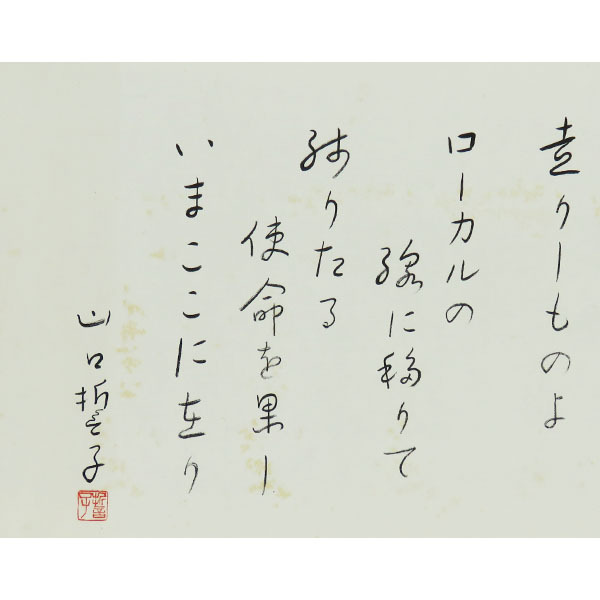 走りしものよ
ローカルの
線に移りて
りたる
使命を果し
いまここに在り
山口誓子
誓子